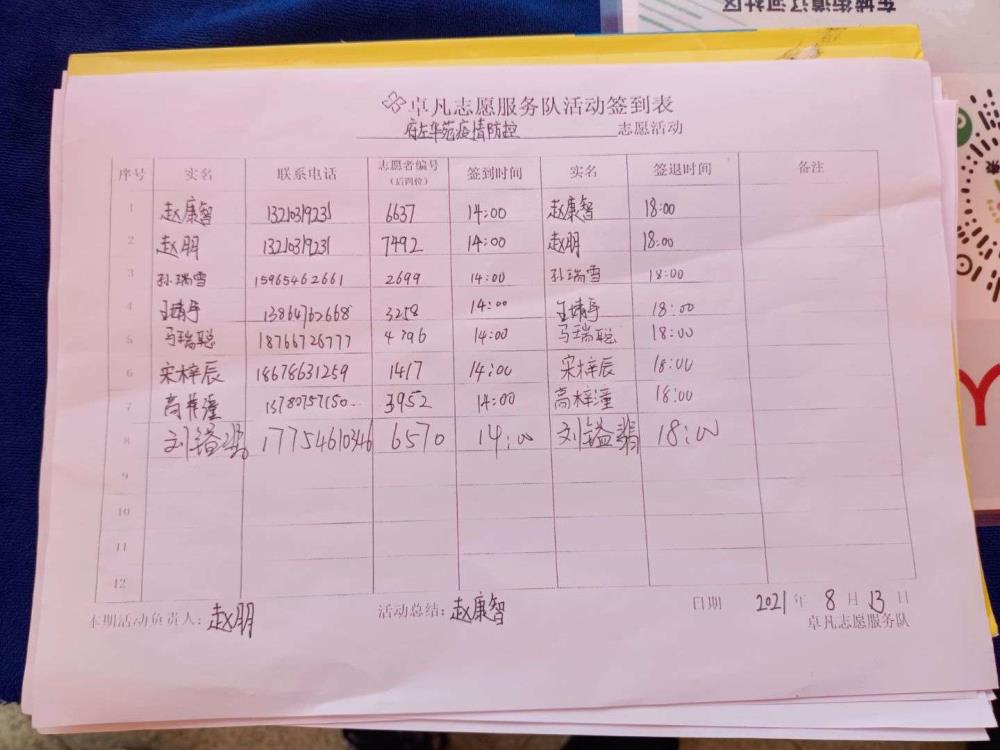 东城街道辽河社区
卓凡志愿服务队活动签到表
府左华苑疫情防控 志愿活动
序号 实名 联系电话 志愿者编号(后四位) 签到时间 实名 签退时间 备注
1 赵康智 13210319231 6637 14:00 赵康智 18:00
2 赵朋 13210319231 7492 14:00 赵朋 18:00
3 孙瑞雪 15965462661 2699 14:00 孙瑞雪 18:00
4 王婧宇 13864762668 3258 14:00 王婧宇 18:00
5 马瑞聪 18766726777 4796 14:00 马瑞聪 18:00
6 宋梓辰 18678631259 1417 14:00 宋梓辰 18:00
7 高梓潼 13780757150 3952 14:00 高梓潼 18:00
8 刘镒翡 17754610346 6570 14:00 刘镒翡 18:00
9
10
11
12
本期活动负责人:赵朋 活动总结:赵康智 日期 2021年8月13日
卓凡志愿服务队